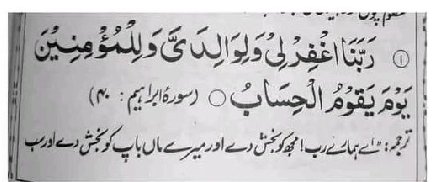 ① رَبَّنَا اغْفِرْ لِيْ وَلِوَالِدَيَّ وَلِلْمُؤْمِنِيْنَ
يَوْمَ يَقُوْمُ الْحِسَابُ ○ (سورۂ ابراہیم : ۴۰)
ترجمہ: "اے ہمارے رب! مجھ کو بخش دے اور میرے ماں باپ کو بخش دے اور سب